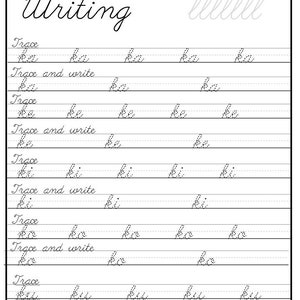 Writing llllllll
Trace
ka ka ka ka ka
Trace and write
ka ka ka
Trace
ke ke ke ke ke
Trace and write
ke ke ke
Trace
ki ki ki ki ki ki
Trace and write
ki ki ki
Trace
ko ko ko ko ko
Trace and write
ko ko ko
Trace
ku ku ku ku ku